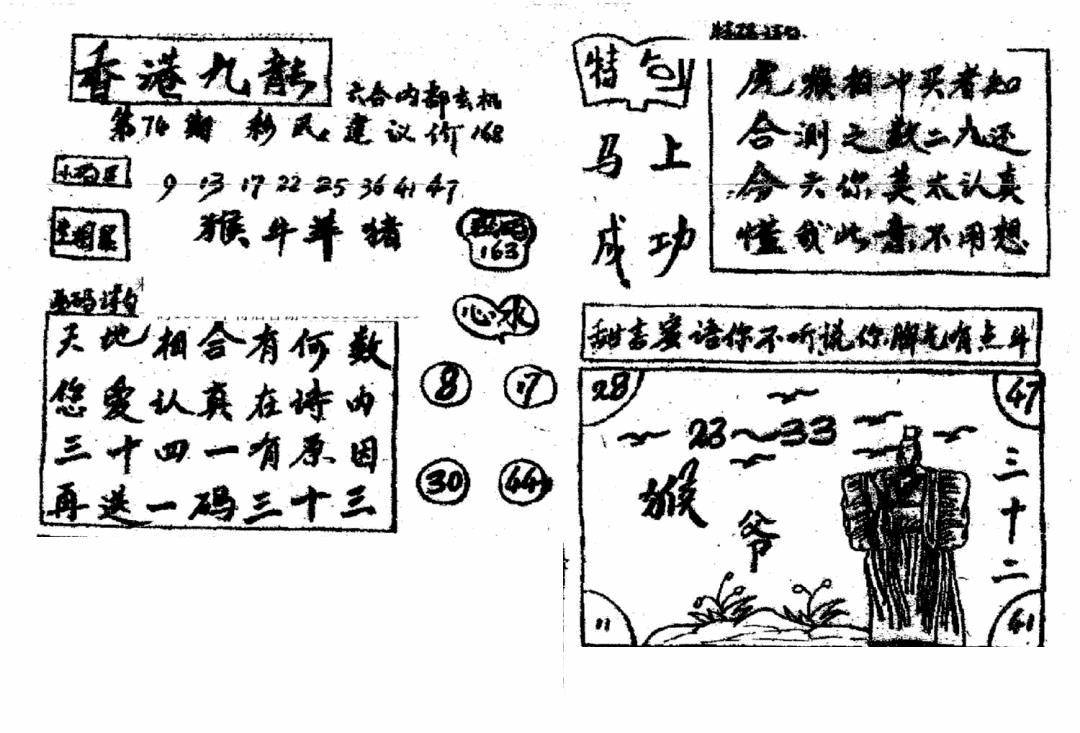 香港九龍
六合内部玄机
第74期 彩民 建议价168
9 13 17 22 25 36 41 47
猴牛羊猪
163
心水
天地相合有何数
您爱认真在诗内
三十四一有原因
再送一码三十三
8
17
30
44
特句
马上
成功
虎猴相冲买者知
合测之数二九还
今六你莫太认真
懂我此意不用想
甜言蜜语你不听说你脚气有点斗
28
47
23～33
猴爷
三十二
11
41